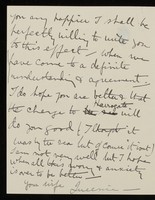 you any happier I shall be
perfectly willing to write you
to this effect when we
have come to a definite
understanding & agreement.
I do hope you are better & that
Harrogate
the change to will
do you good (I thought it
was by the sea but of course it isn't)
I am not very well but I hope
when all this worry & anxiety
is over to be better
Your wife